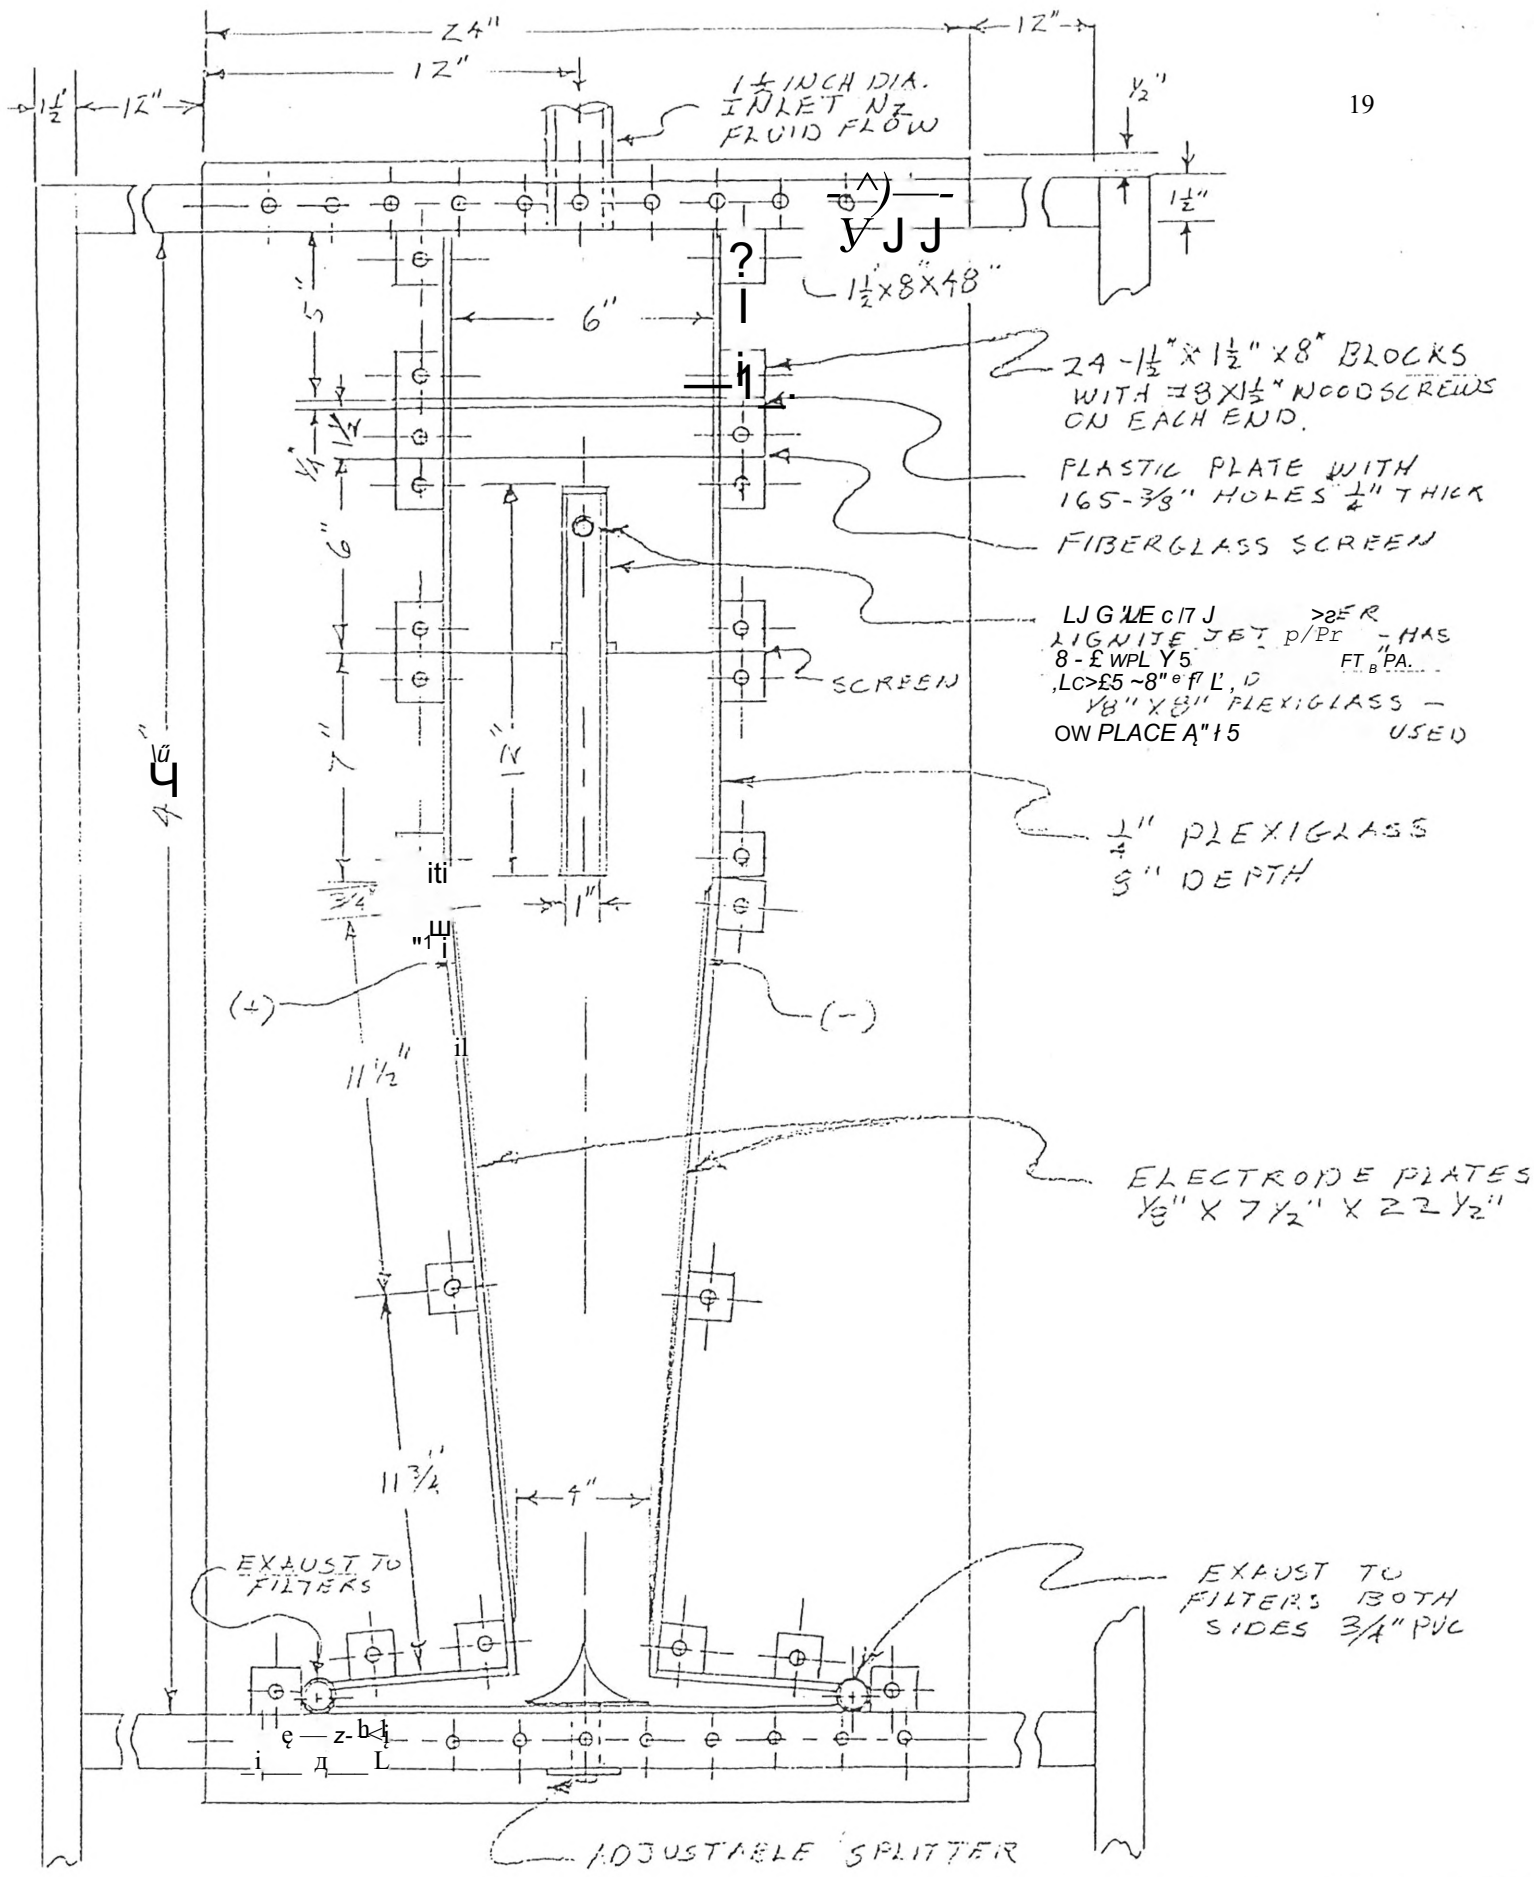 24"
12"
12"
1½"
12"
1½ INCH DIA.
INLET N2
FLUID FLOW
½"
19
1½"
1½"x8"x48"
5"
6"
24-1½"x1½"x8" BLOCKS
WITH #8x1½" WOODSCREWS
ON EACH END.
¼"
1½
PLASTIC PLATE WITH
165-3/8" HOLES ¼" THICK
6"
FIBERGLASS SCREEN
LIGNITE JET
HAS
SCREEN
1/8" X 8" PLEXIGLASS -
PLACE
USED
7"
12"
¼" PLEXIGLASS
8" DEPTH
3/4"
1"
(+)
(-)
11½"
ELECTRODE PLATES
1/8" X 7½" X 22½"
11¾"
4"
EXAUST TO
FILTERS
EXAUST TO
FILTERS BOTH
SIDES 3/4" PVC
ADJUSTABLE SPLITTER